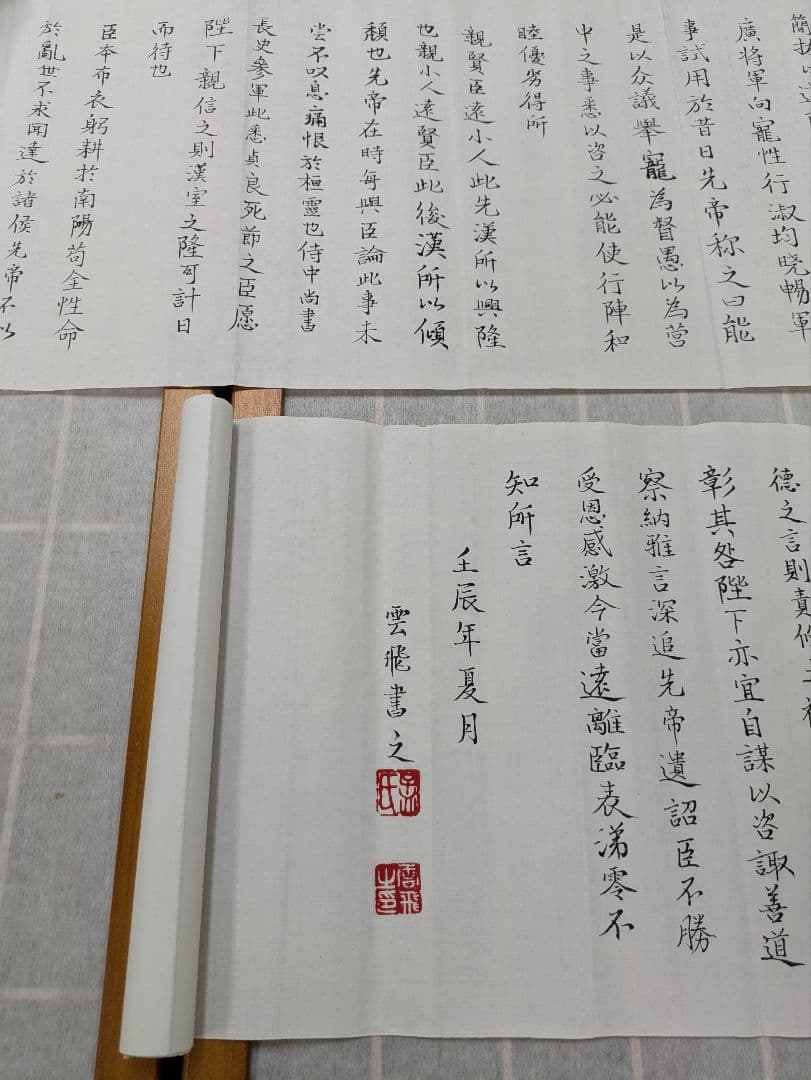 簡拔以遺
廣將軍向寵性行淑均晓暢軍
事試用於昔日先帝称之曰能
是以众議舉寵為督愚以為营
中之事悉以咨之必能使行陣和
睦優劣得所
親賢臣遠小人此先漢所以興隆
也親小人遠賢臣此後漢所以傾
頹也先帝在時每與臣論此事未
尝不叹息痛恨於桓靈也侍中尚書
長史參軍此悉貞良死節之臣愿
陛下親信之則漢室之隆可計日
而待也
臣本布衣躬耕於南陽苟全性命
於亂世不求聞達於諸侯先帝不以
德之言則責攸之
彰其咎陛下亦宜自謀以咨諏善道
察納雅言深追先帝遺詔臣不勝
受恩感激今當遠離臨表涕零不
知所言
壬辰年夏月
雲飛書之
雲飛之印